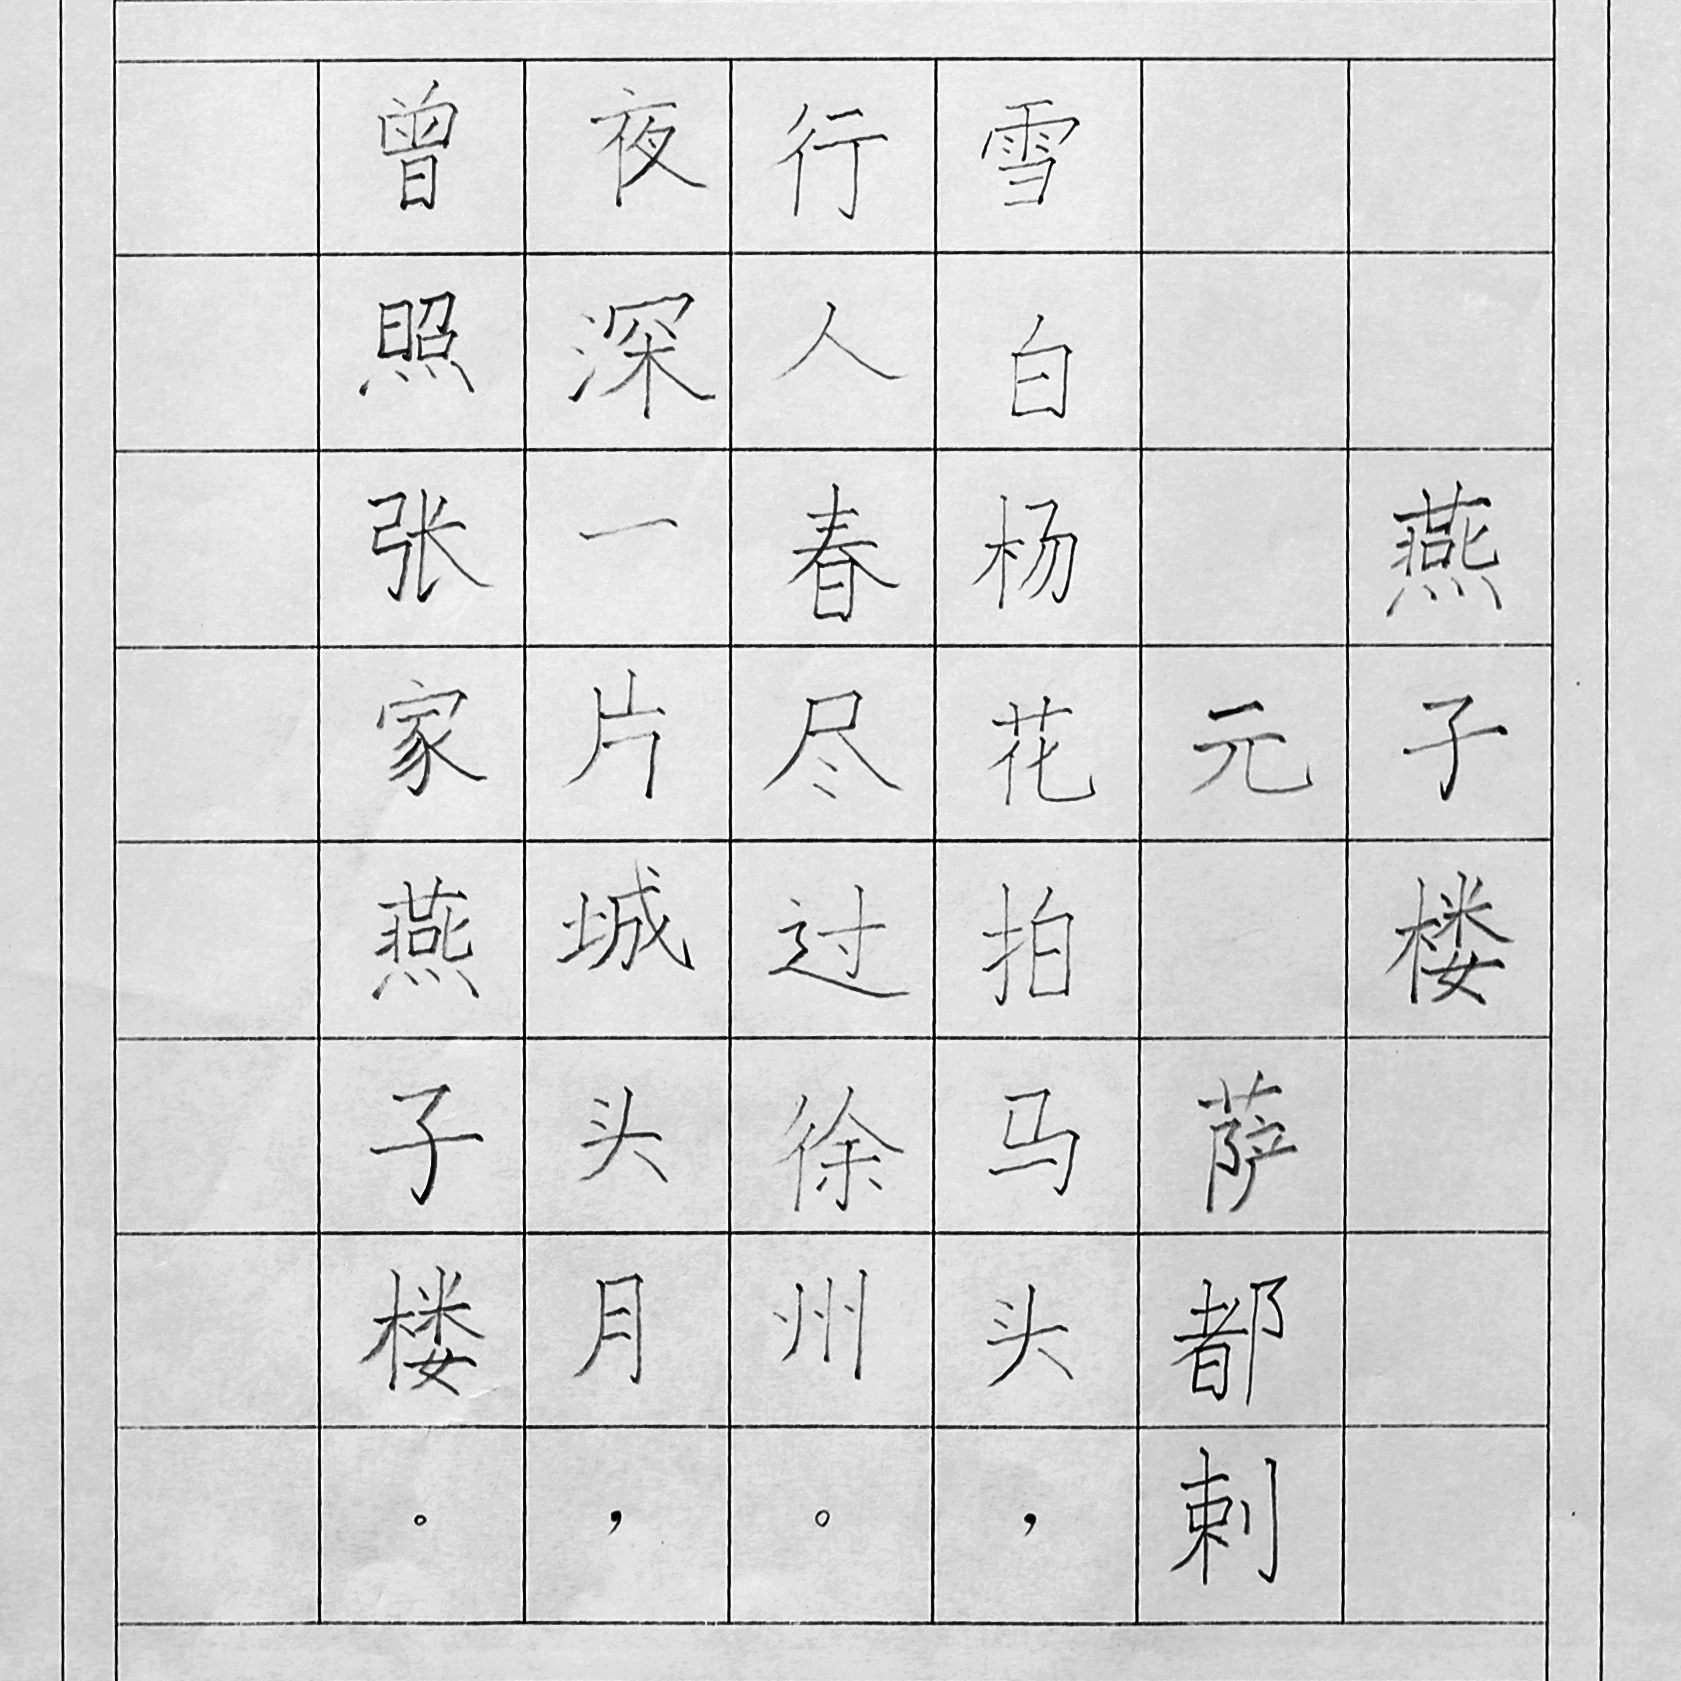 燕子楼
元 萨都剌
雪白杨花拍马头，
行人春尽过徐州。
夜深一片城头月，
曾照张家燕子楼。